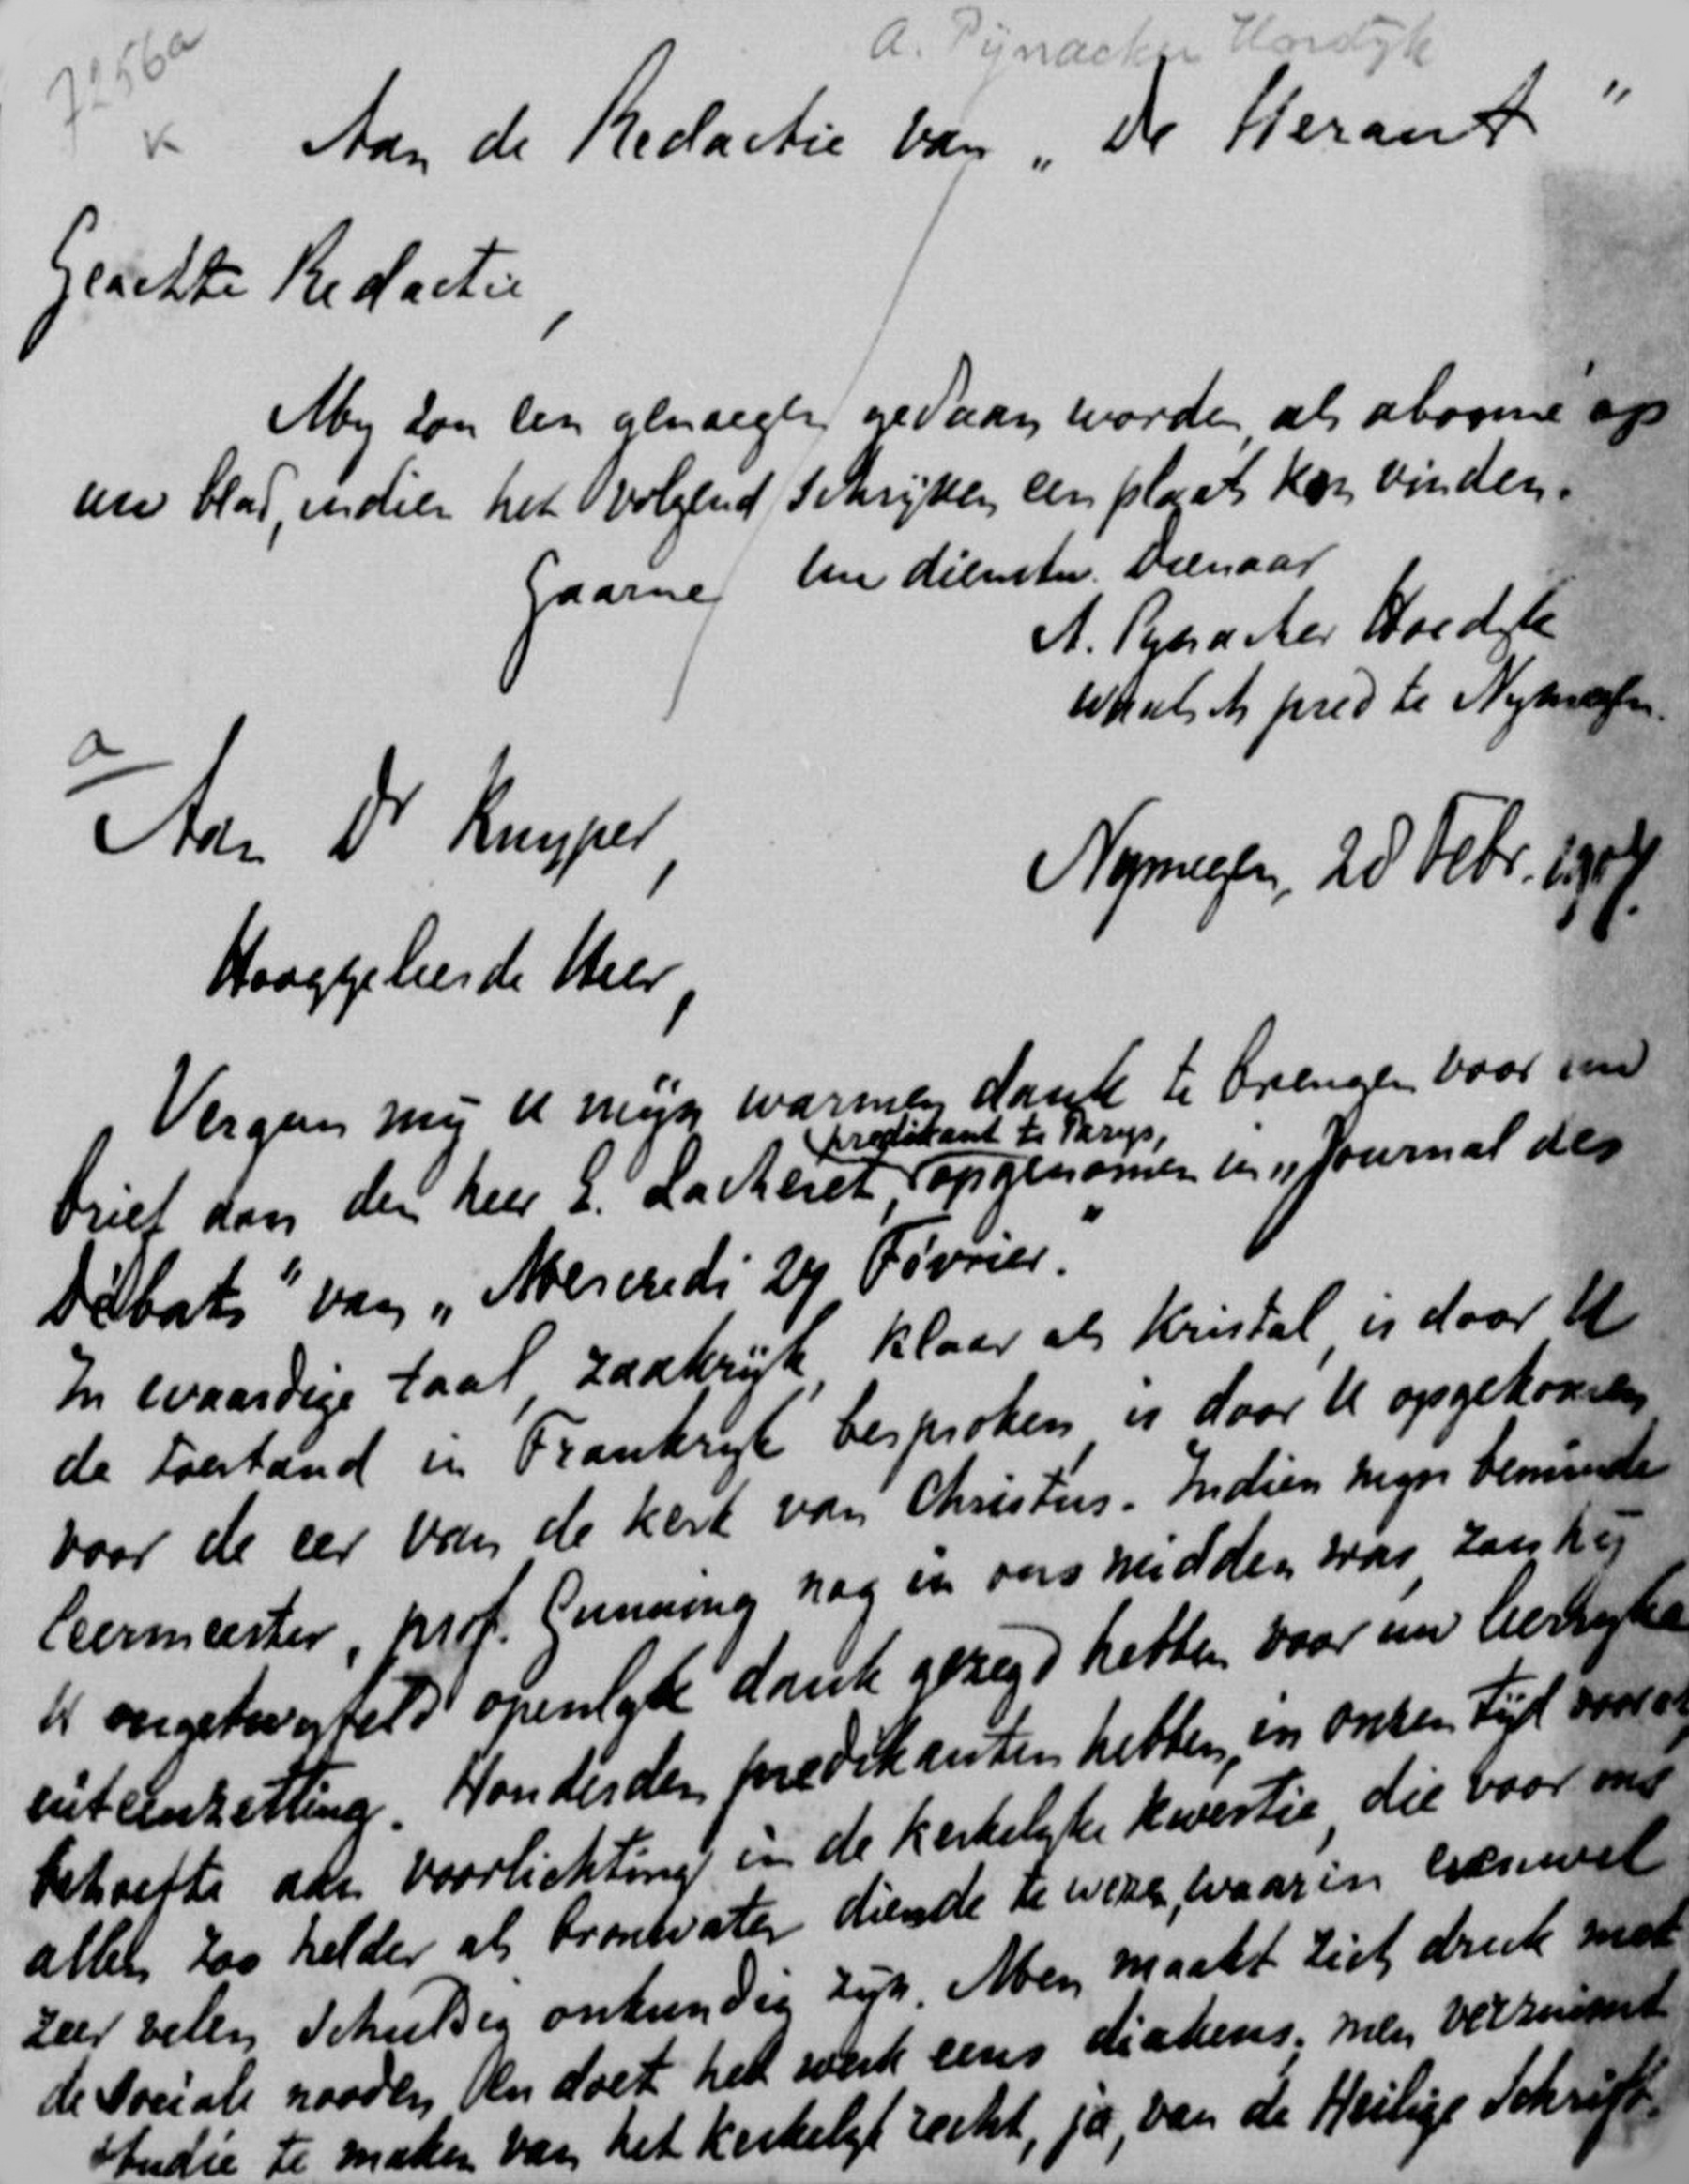 7256a
A. Pijnacker Hordijk
Aan de Redactie van „De Heraut"
Geachte Redactie,
My zou een genoegen gedaan worden, als abonné op
uw blad, indien het volgend schrijven een plaats kon vinden.
Gaarne Uw dienstw. Dienaar
A. Pynacker Hordyk
Waalsch pred te Nymegen.
a
Aan Dr Kuyper,
Nymegen, 28 Febr. 1907.
Hooggeleerde Heer,
Vergun my U mijn warmen dank te brengen voor uw
predikant te Parys,
brief aan den heer E. Lacheret, opgenomen in „Journal des
Débats" van „Mercredi 27 Février."
In waardige taal, zaakrijk, klaar als kristal, is door U
de toestand in Frankryk besproken, is door U opgekomen
voor de eer van de kerk van Christus. Indien myn beminde
leermeester, prof. Gunning nog in ons midden was, zou hij
U ongetwyfeld openlyk dank gezegd hebben voor uw heerlyke
uiteenzetting. Honderden predikanten hebben, in onzen tijd vooral
behoefte aan voorlichting in de kerkelyke kwestie, die voor ons
allen zoo helder als bronwater diende te wezen, waarin evenwel
zeer velen schuldig onkundig zyn. Men maakt zich druk met
de sociale nooden, en doet het werk eens diakens, men verzuimt
studie te maken van het kerkelyk recht, ja, van de Heilige Schrift.